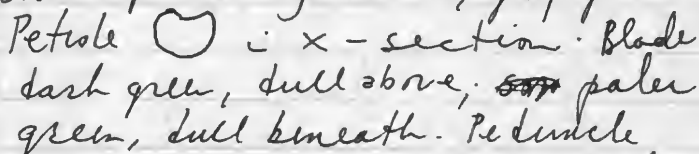 Petiole in x-section. Blade
dark green, dull above; paler
green, dull beneath. Peduncle